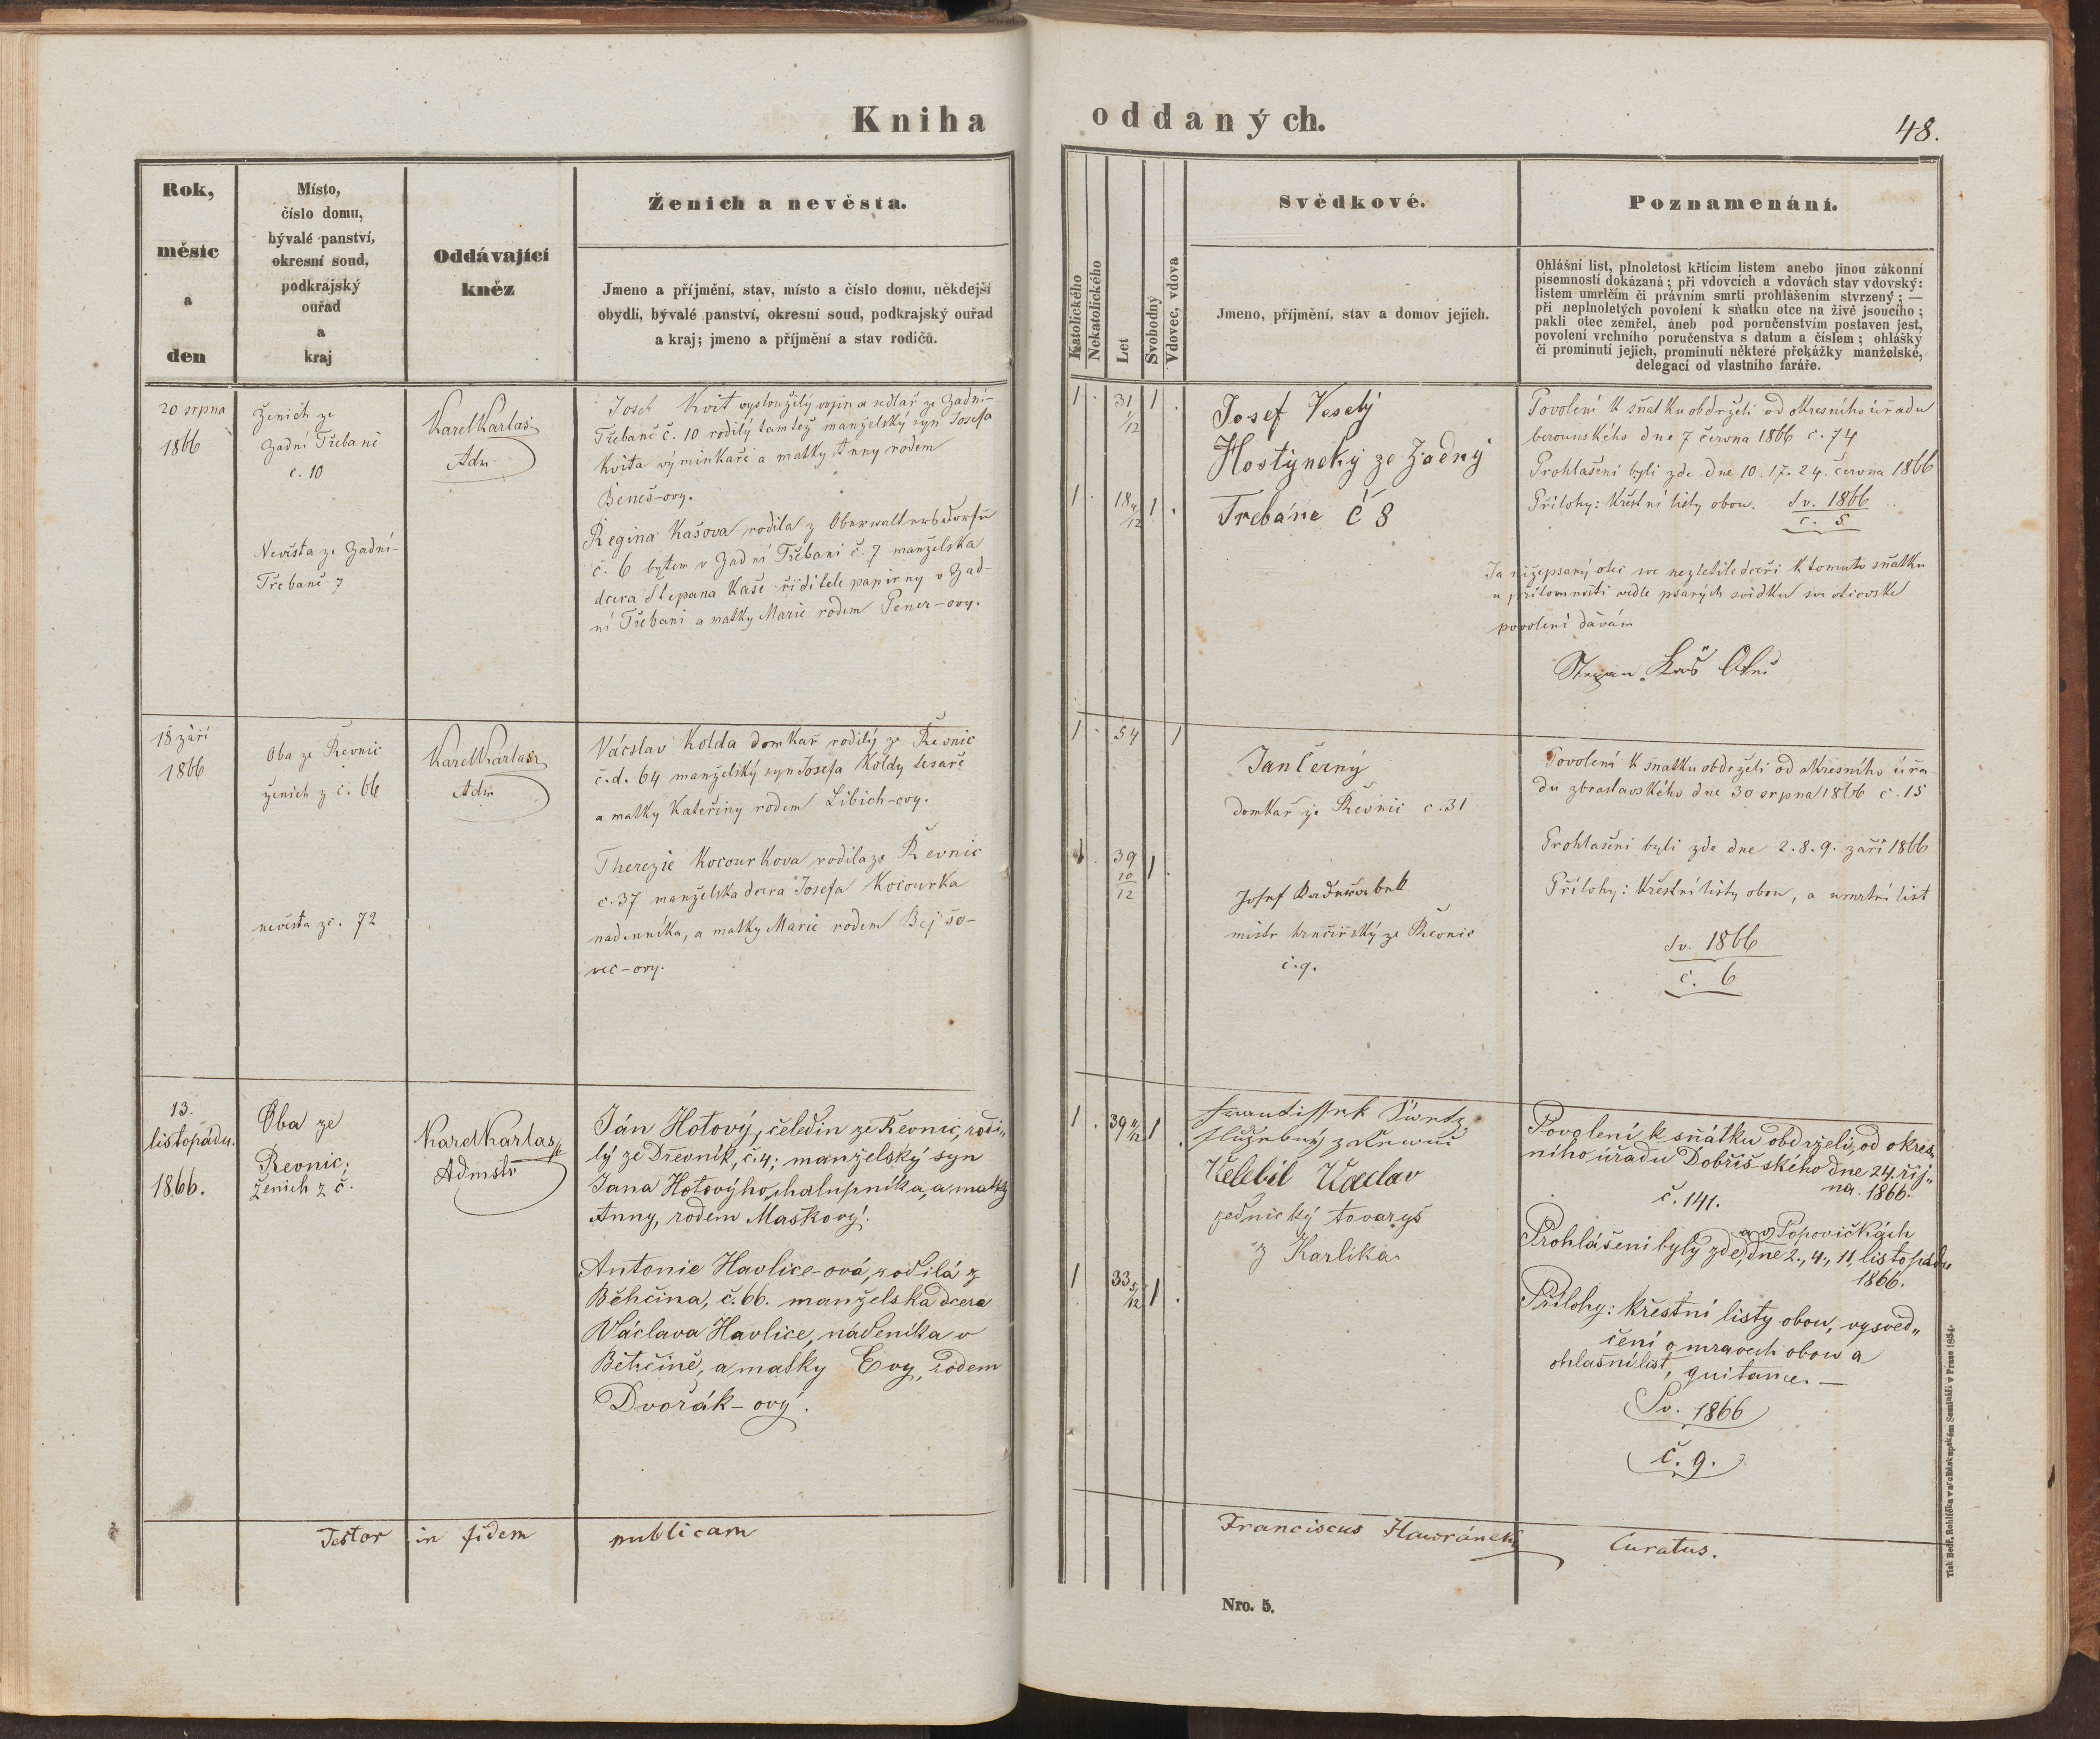 Kniha
oddaných.
48.
Rok,
měsíc
a
den
Místo,
číslo domu,
bývalé panství,
okresní soud,
podkrajský
ouřad
a
kraj
Oddávající
kněz
Ženich a nevěsta.
Jmeno a příjmění, stav, místo a číslo domu, někdejší
obydlí, bývalé panství, okresní soud, podkrajský ouřad
a kraj; jmeno a příjmění a stav rodičů.
Katolického
Nekatolického
Let
Svobodný
Vdovec, vdova
Svědkové.
Jmeno, příjmění, stav a domov jejich.
Poznamenání.
Ohlášní list, plnoletost křticím listem anebo jinou zákonní
písemností dokázaná; při vdovcích a vdovách stav vdovský:
listem umrlčím či právním smrti prohlášením stvrzený; —
při neplnoletých povolení k sňatku otce na živě jsoucího;
pakli otec zemřel, aneb pod poručenstvím postaven jest,
povolení vrchního poručenstva s datum a číslem; ohlášky
či prominutí jejich, prominutí některé překážky manželské,
delegací od vlastního faráře.
20 srpna
1866
Ženich ze
Zadní Třebaně
č. 10
Nevěsta ze Zadní-
Třebaně 7
Karel Karlas
Adm.
Josef Kvit vysloužilý vojín a sedlař ze Zadní-
Třebaně č. 10 rodilý tamtež manželský syn Josefa
Kvita výminkaře a matky Anny rodem
Beneš-ovy.
Regina Kašova rodila z Oberwaltersdorfu
č. 6 bytem v Zadní Třebani č. 7 manželska
dcera Štepana Kaše řiditele papirny v Zad-
ní Třebani a matky Marie rodem Pener-ovy.
1 31 1
1/12
1 18 1
/12
Josef Veselý
Hostýnský ze Zadný
Trebáne č 8
Povolení k sňatku obdrželi od okresního úřadu
berounského dne 7 června 1866 č. 74
Prohlašeni byli zde dne 10. 17. 24. června 1866
Přílohy: křestní listy obou. Sv. 1866
č. 5
Ja nížepsaný otec sve nezletile dceři k tomuto sňatku
u přítomnosti vedle psaných svědku sve otcovské
povolení dávám
Stepan Kaš Otec
18 září
1866
Oba ze Řevnic
ženich z č. 66
nevěsta z č. 72
Karel Karlas
Adm
Václav Kolda domkař rodilý ze Řevnic
č.d. 64 manželský syn Josefa Koldy tesaře
a matky Kateřiny rodem Libich-ovy.
Therezie Kocourkova rodila ze Řevnic
č. 37 manželska dcera Josefa Kocourka
nadenníka, a matky Marie rodem Bejšo-
vec-ovy.
1 54 1
1 39 1
10
12
Jan Černý
domkař ze Řevnic č. 31
Josef
mistr hrnčířský ze Řevnic
č. 9.
Povolení k sňatku obdrželi od okresního úřa-
du zbraslavského dne 30 srpna 1866 č. 15
Prohlašeni byli zde dne 2. 8. 9. září 1866
Přílohy: křestní listy obou, a umrtní list
Sv. 1866
č. 6
13.
listopadu.
1866.
Oba ze
Řevnic;
ženich z č.
Karel Karlas
Admstr
Ján Hotový, čeledin ze Řevnic, rodi-
lý ze Dřevník, č. 4; manželský syn
Jana Hotovýho, chalupníka, a matky
Anny, rodem Maškový.
Antonie Havlice-ová, rodilá z
Běhčina, č. 66. manželská dcera
Václava Havlice, nádeníka v
Běhčíně, a matky Evy, rodem
Dvořák-ový.
1 39 1
/12
1 33 5/12 1
Frantissek
Služebný z Řewnic
Václav
zednický tovaryš
z Karlika
Povolení k sňátku obdrželi od okres-
ního úřadu Dobříš-ského dne 24. říj-
na. 1866.
č. 141.
a v Popovičkách
Prohlášeni byly zde, dne 2., 4., 11. listopadu
1866.
Přílohy: křestní listy obou, vysvěd-
čení o mravech obou a
ohlašní list, quitance. —
Sv. 1866
č. 9.
Testor in fidem publicam
Franciscus Hawránek
Curatus.
Nro. 5.
Tisk Bedř. Rohlíčka v arcibiskupském Semináři v Praze 1854.